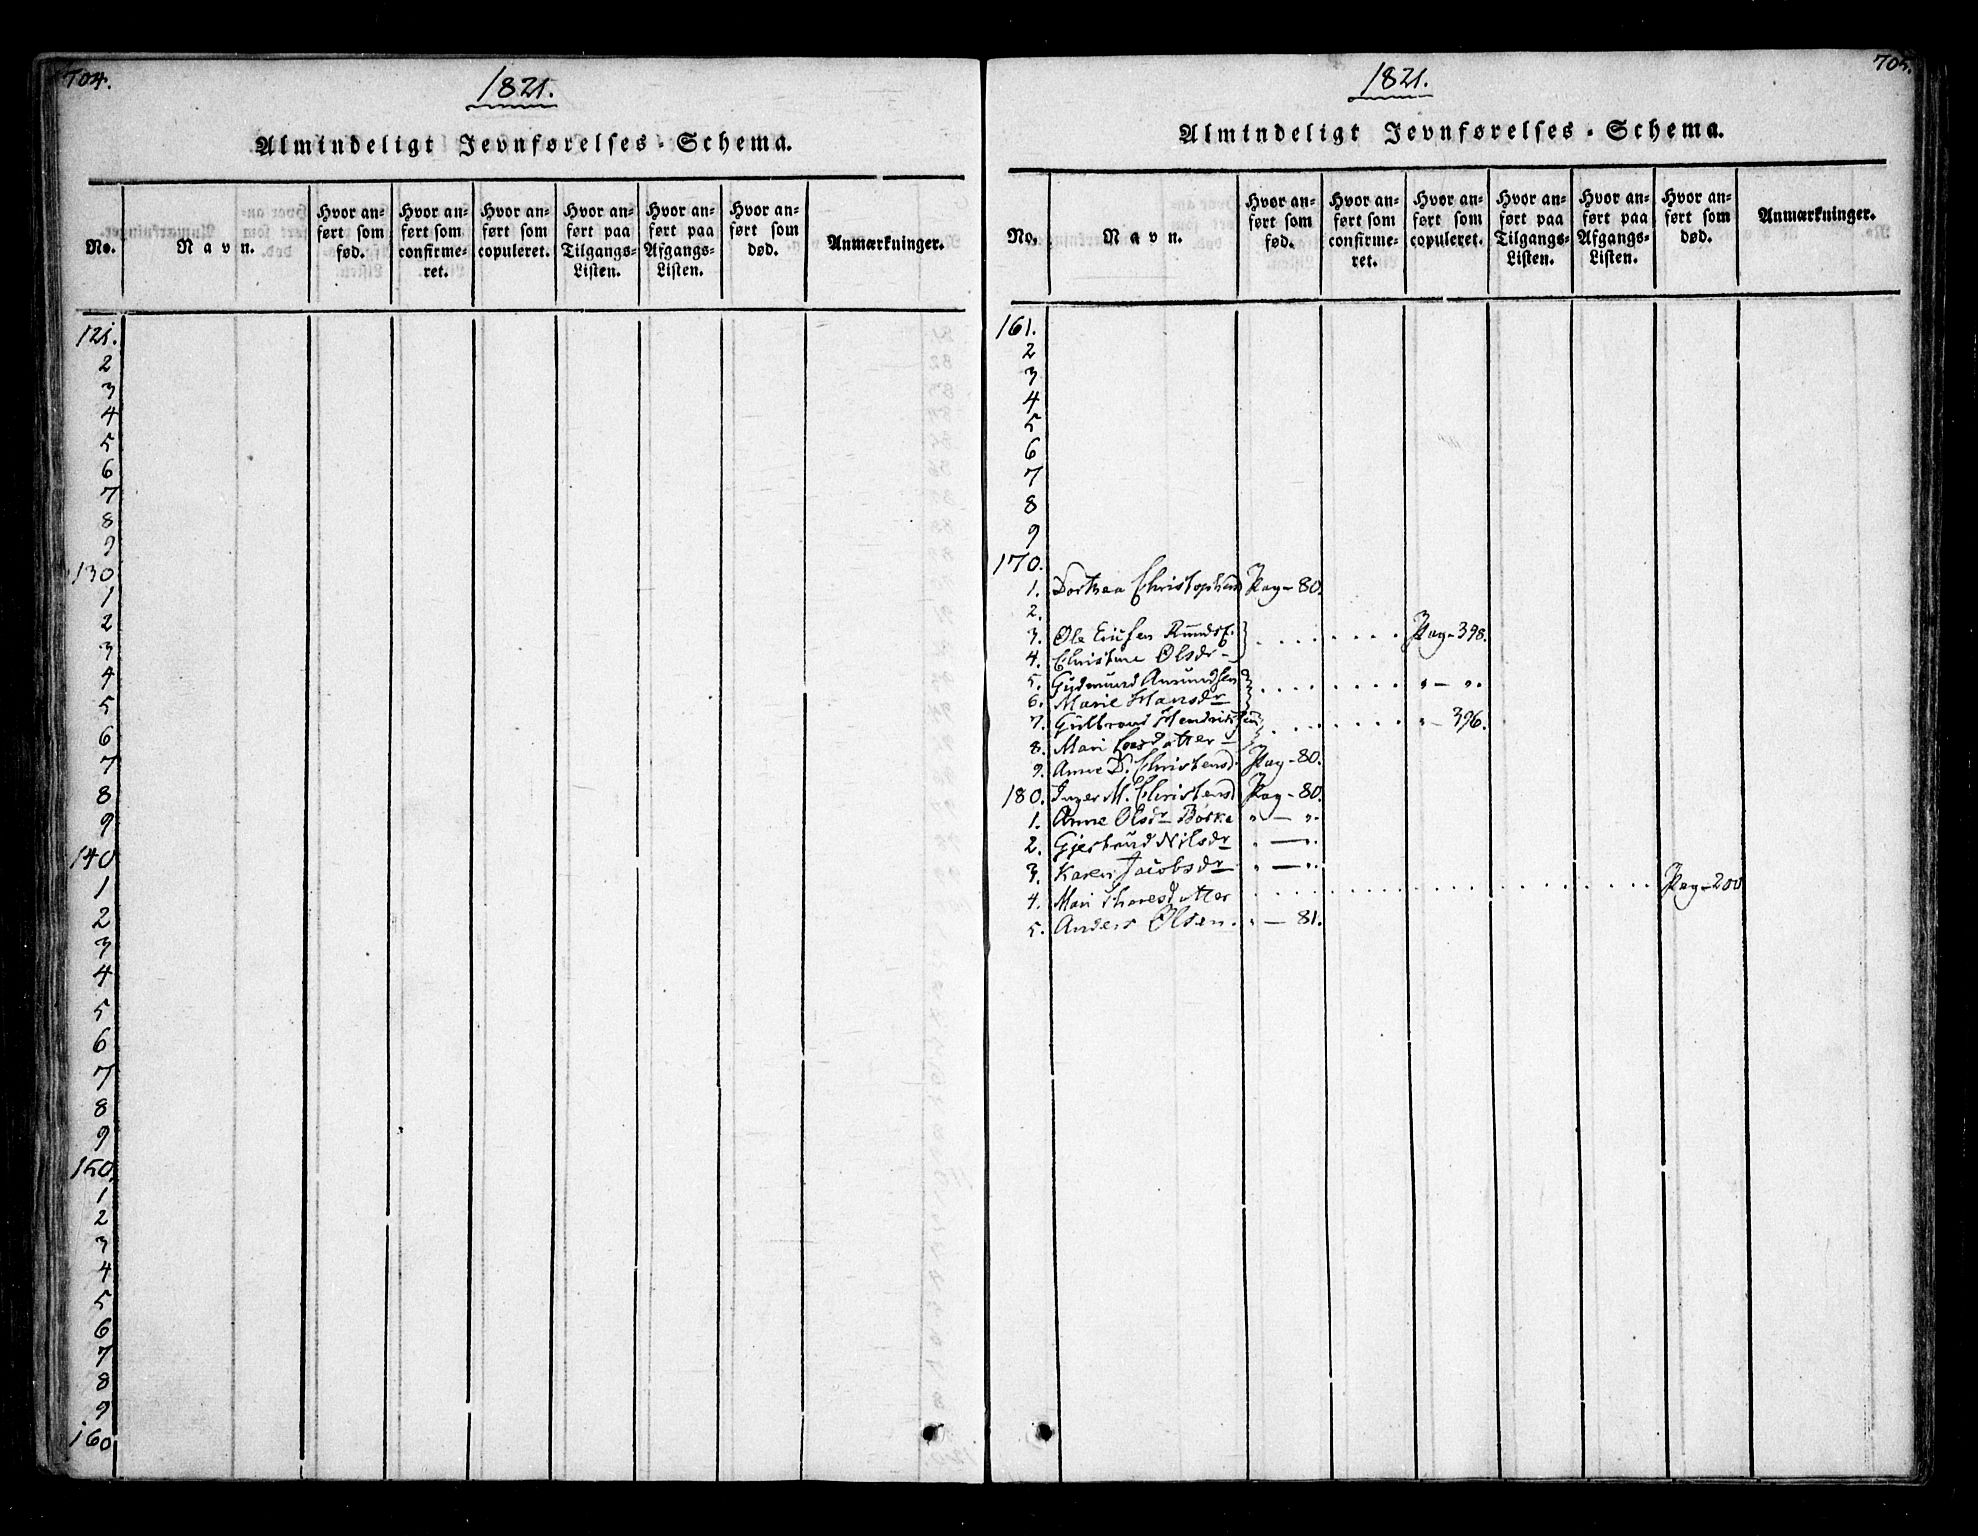 704.
1821.
Almindeligt Jevnførelses-Schema.
No. Navn. Hvor anført som fød. Hvor anført som confirmeret. Hvor anført som copuleret. Hvor anført paa Tilgangs-Listen. Hvor anført paa Afgangs-Listen. Hvor anført som død. Anmærkninger.
121.
2
3
4
5
6
7
8
9
130
1
2
3
4
5
6
7
8
9
140
1
2
3
4
5
6
7
8
9
150.
1
2
3
4
5
6
7
8
9
160
705.
1821.
Almindeligt Jevnførelses-Schema.
No. Navn. Hvor anført som fød. Hvor anført som confirmeret. Hvor anført som copuleret. Hvor anført paa Tilgangs-Listen. Hvor anført paa Afgangs-Listen. Hvor anført som død. Anmærkninger.
161.
2
3
4
5
6
7
8
9
170.
1. Dorthea Pag-80.
2.
3. Ole Pag-398.
4. Christine Olsdr
5. Gudmund Amundsen " — ".
6. Marie Hansdr
7. Gulbrand Hendriksen " — 396.
8. Mari
9. Anne D. Christensd. Pag-80.
180. Inger M. Christensd Pag-80.
1. Anne Olsdr " — ".
2. Gjertrud Nilsdr " — ".
3. Karen Jacobsdr " — ".
4. Mari Pag-200
5. Anders Olsen. " — 81.